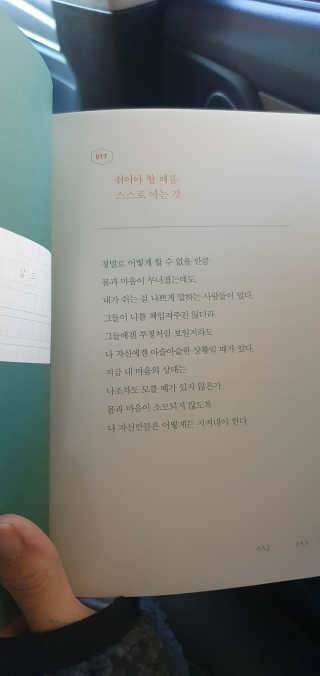 017
쉬어야 할 때를
스스로 아는 것
정말로 어떻게 할 수 없을 만큼
몸과 마음이 무너졌는데도,
내가 쉬는 걸 나쁘게 말하는 사람들이 있다.
그들이 나를 책임져주진 않더라.
그들에겐 투정처럼 보일지라도
나 자신에겐 아슬아슬한 상황일 때가 있다.
지금 내 마음의 상태는
나조차도 모를 때가 있지 않은가.
몸과 마음이 소모되지 않도록
나 자신만큼은 어떻게든 지켜내야 한다.